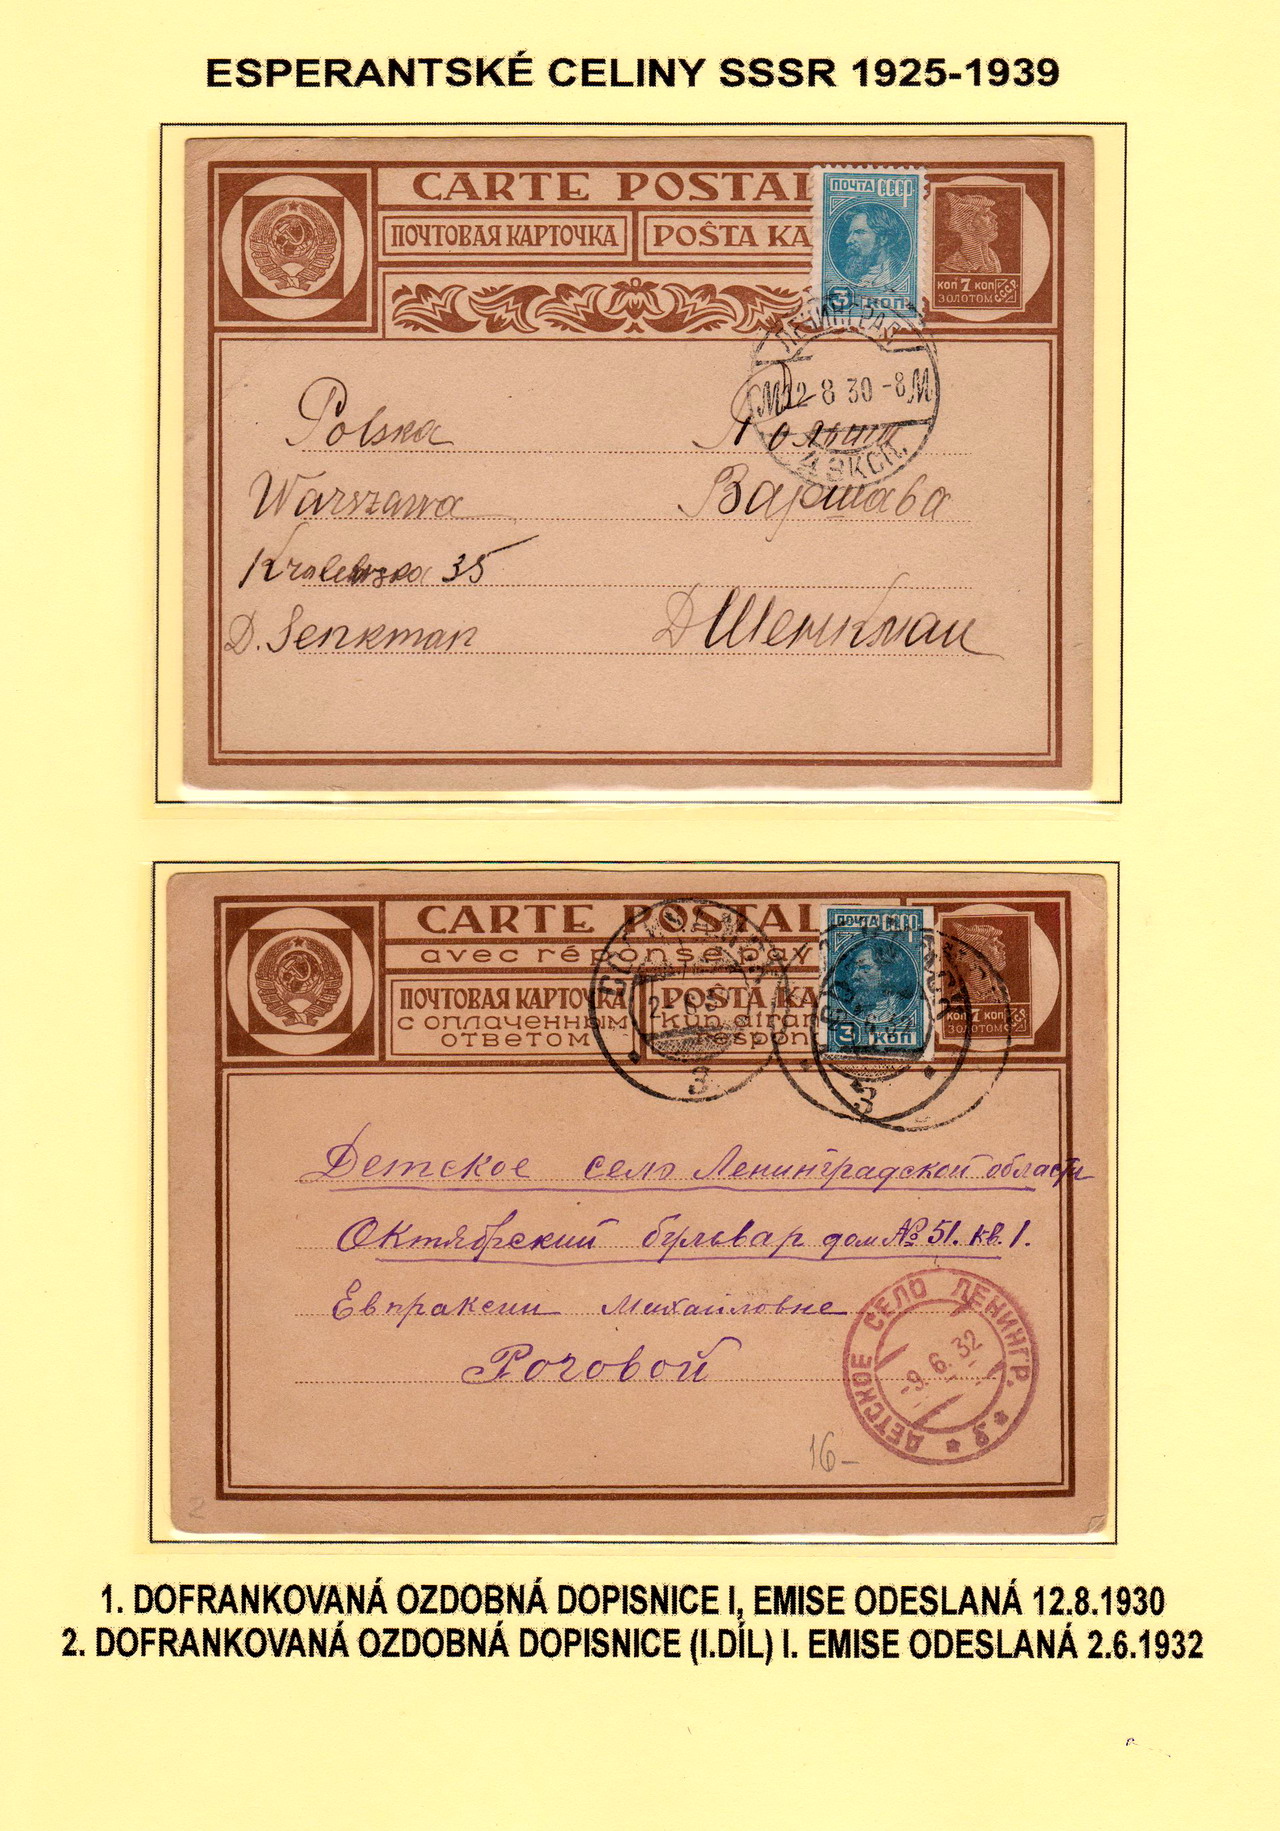 ESPERANTSKÉ CELINY SSSR 1925-1939
CARTE POSTAL
ПОЧТОВАЯ КАРТОЧКА
POŜTA KA
ПОЧТА СССР
3 КОП.
КОП 7 КОП
ЗОЛОТОМ СССР
ЛЕНИНГРАД
12-8 30-8
4 ЭКСП.
Polska
Warszawa
35
D. Senkman
Варшава
Д Шенкман
CARTE POSTALE
avec réponse pay
ПОЧТОВАЯ КАРТОЧКА
с оплаченным
ответом
POŜTA KA
kun
respon
ПОЧТА СССР
3 КОП
КОП 7 КОП
ЗОЛОТОМ
3
3
Детское село Ленинградской области
Октябрский бульвар дом № 51. кв. 1.
Евпраксии Михайловне
Роговой
ДЕТСКОЕ СЕЛО ЛЕНИНГР.
-9.6.32
16-
2
1. DOFRANKOVANÁ OZDOBNÁ DOPISNICE I, EMISE ODESLANÁ 12.8.1930
2. DOFRANKOVANÁ OZDOBNÁ DOPISNICE (I.DÍL) I. EMISE ODESLANÁ 2.6.1932